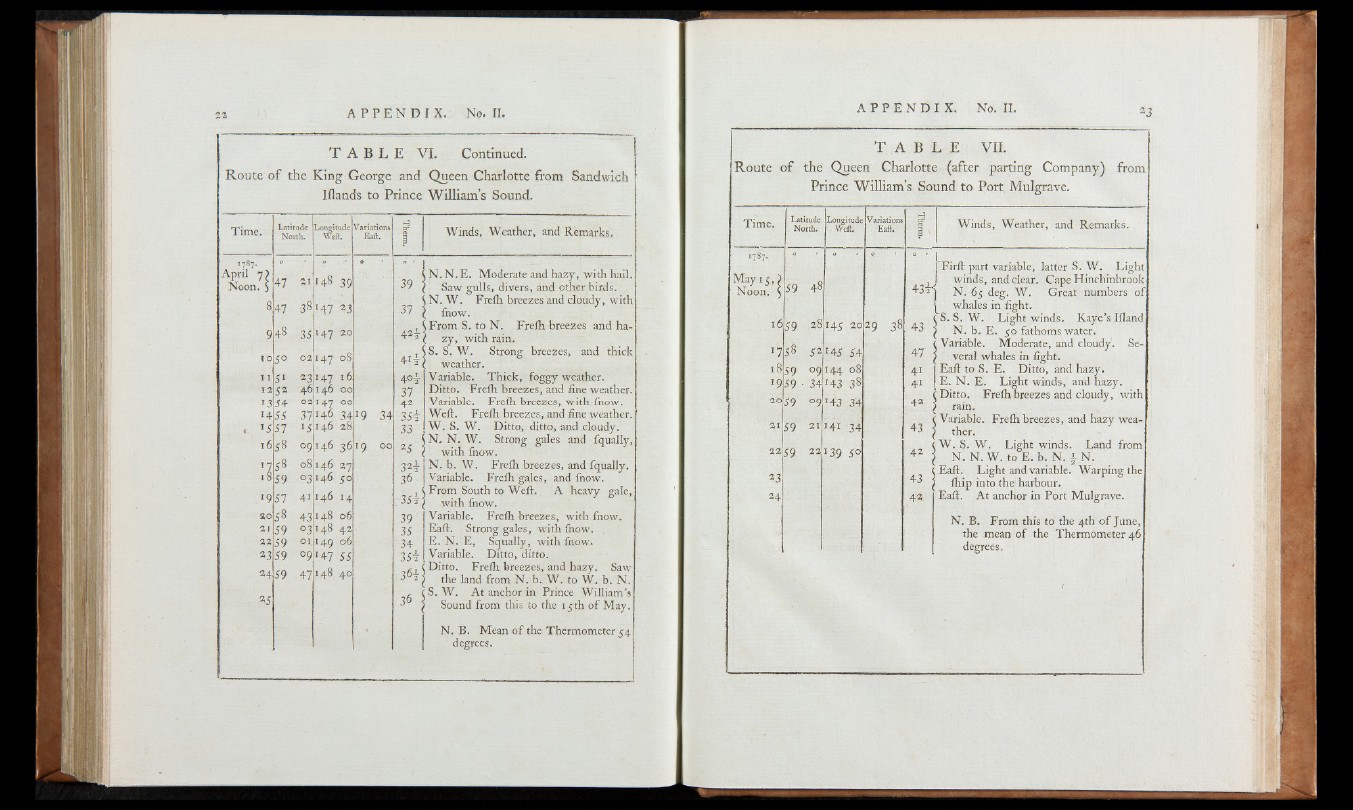 22 APPENDIX. No. II.
TABLE VI. Continued.
Route of the King George and Queen Charlotte from Sandwich
Iſlands to Prince William's Sound.
Time. Latitude North. Longitude Weſt. Variations Eaſt. Therm. Winds, Weather, and Remarks.
1787. ° ' ° ' ° ' ° '
April 7 Noon. 47 21 148 39 39 N. N. E. Moderate and hazy, with hail.
Saw gulls, divers, and other birds.
8 47 38 147 23 37 N. W. Freſh breezes and cloudy, with
ſnow.
9 48 35 147 20 42½ From S. to N. Freſh breezes and ha-
zy, with rain.
10 50 02 147 08 41½ S. S. W. Strong breezes, and thick
weather.
11 51 23 147 16 40½ Variable. Thick, foggy weather.
12 52 46 146 00 37 Ditto. Freſh breezes, and fine weather.
13 54 02 147 00 42 Variable. Freſh breezes, with ſnow.
14 55 37 146 34 19 34 35½ Weſt. Freſh breezes, and fine weather.
15 57 15 146 28 33 W. S. W. Ditto, ditto, and cloudy.
16 58 09 146 36 19 00 25 N. N. W. Strong gales and ſqually,
with ſnow.
17 58 08 146 27 32½ N. b. W. Freſh breezes, and ſqually.
18 59 03 146 50 36 Variable. Freſh gales, and ſnow.
19 57 41 146 14 35½ From South to Weſt. A heavy gale,
with ſnow.
20 58 43 148 06 39 Variable. Freſh breezes, with ſnow.
21 59 03 148 42 35 Eaſt. Strong gales, with ſnow.
22 59 01 149 06 34 E. N. E, Squally, with ſnow.
23 59 09 147 55 35½ Variable. Ditto, ditto.
24 59 47 148 40 36½ Ditto. Freſh breezes, and hazy. Saw
the land from N. b. W. to W. b. N.
25 36 S. W. At anchor in Prince William's
Sound from this to the 15th of May.
N. B. Mean of the Thermometer 54
degrees.
APPENDIX. No. II. 23
TABLE VII.
Route of the Queen Charlotte (after parting Company) from
Prince William's Sound to Port Mulgrave.
Time. Latitude North. Longitude Weſt. Variations Eaſt. Therm. Winds, Weather, and Remarks.
1787. ° ' ° ' ° ' ° '
May 15, Noon. 59 48 43½ Firſt part variable, latter S. W. Light
winds, and clear. Cape Hinchinbrook
N. 65 deg. W. Great numbers of
whales in ſight.
16 59 28 145 20 29 38 43 S. S. W. Light winds. Kaye's Iſland
N. b. E. 50 fathoms water.
17 58 52 145 54 47 Variable. Moderate, and cloudy. Se-
veral whales in ſight.
18 59 09 144 08 41 Eaſt to S. E. Ditto, and hazy.
19 59 34 143 38 41 E. N. E. Light winds, and hazy.
20 59 09 143 34 42 Ditto. Freſh breezes and cloudy, with
rain.
21 59 21 141 34 43 Variable. Freſh breezes, and hazy wea-
ther.
22 59 22 139 50 42 W. S. W. Light winds. Land from
N. N. W. to E. b. N. ½ N.
23 43 Eaſt. Light and variable. Warping the
ſhip into the harbour.
24 42 Eaſt. At anchor in Port Mulgrave.
N. B. From this to the 4th of June,
the mean of the Thermometer 46
degrees.